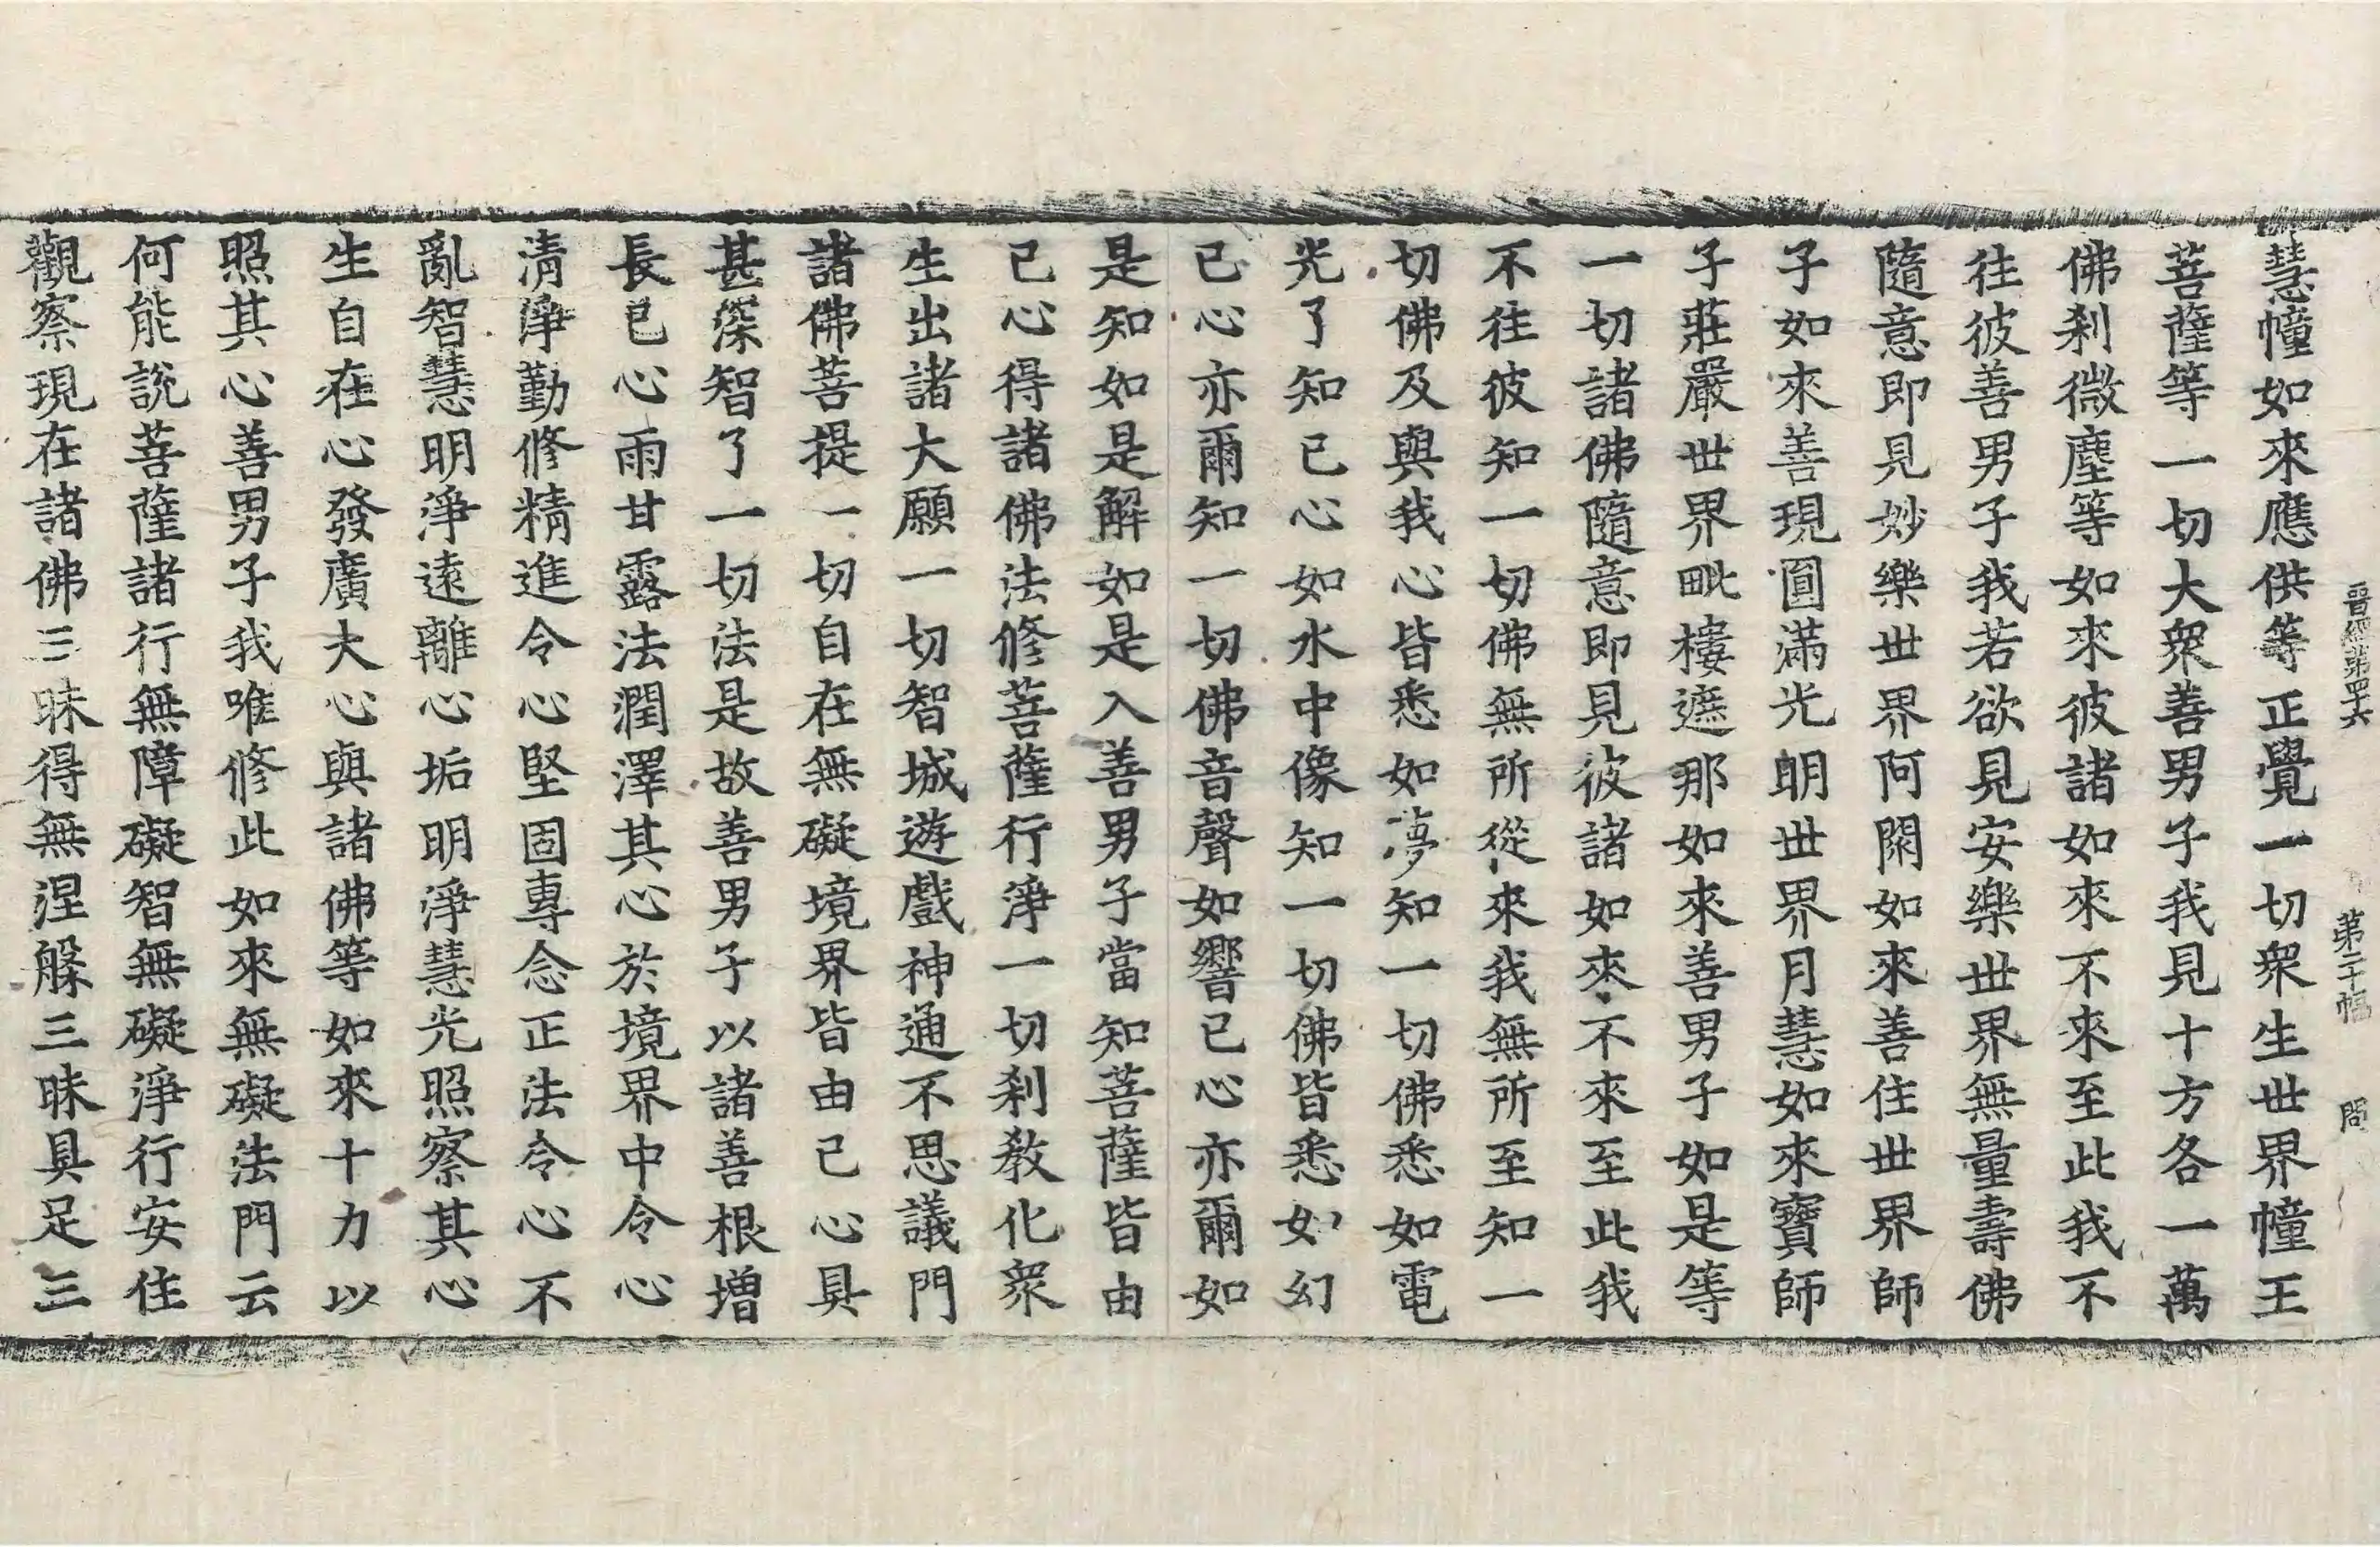 晉經第四十六　第二十幅　問
慧幢如來應供等正覺一切衆生世界幢王
菩薩等一切大衆善男子我見十方各一萬
佛刹微塵等如來彼諸如來不來至此我不
往彼善男子我若欲見安樂世界無量壽佛
隨意即見妙樂世界阿閦如來善住世界師
子如來善現圓滿光明世界月慧如來寶師
子莊嚴世界毗樓遮那如來善男子如是等
一切諸佛隨意即見彼諸如來不來至此我
不往彼知一切佛無所從來我無所至知一
切佛及與我心皆悉如夢知一切佛悉如電
光了知己心如水中像知一切佛皆悉如幻
己心亦爾知一切佛音聲如響己心亦爾如
是知如是解如是入善男子當知菩薩皆由
己心得諸佛法修菩薩行淨一切刹教化衆
生出諸大願一切智城遊戲神通不思議門
諸佛菩提一切自在無礙境界皆由己心具
甚深智了一切法是故善男子以諸善根增
長己心雨甘露法潤澤其心於境界中令心
清淨勤修精進令心堅固專念正法令心不
亂智慧明淨遠離心垢明淨慧光照察其心
生自在心發廣大心與諸佛等如來十力以
照其心善男子我唯修此如來無礙法門云
何能說菩薩諸行無障礙智無礙淨行安住
觀察現在諸佛三昧得無涅槃三昧具足三